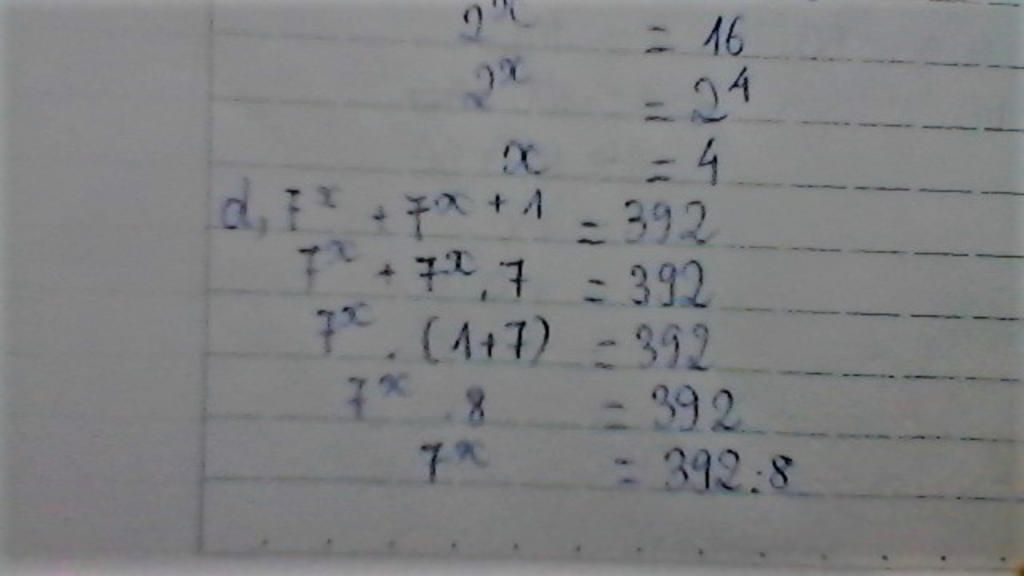 2ˣ = 16
2ˣ = 2⁴
x = 4
d, 7ˣ + 7ˣ⁺¹ = 392
7ˣ + 7ˣ . 7 = 392
7ˣ . (1+7) = 392
7ˣ . 8 = 392
7ˣ = 392 : 8